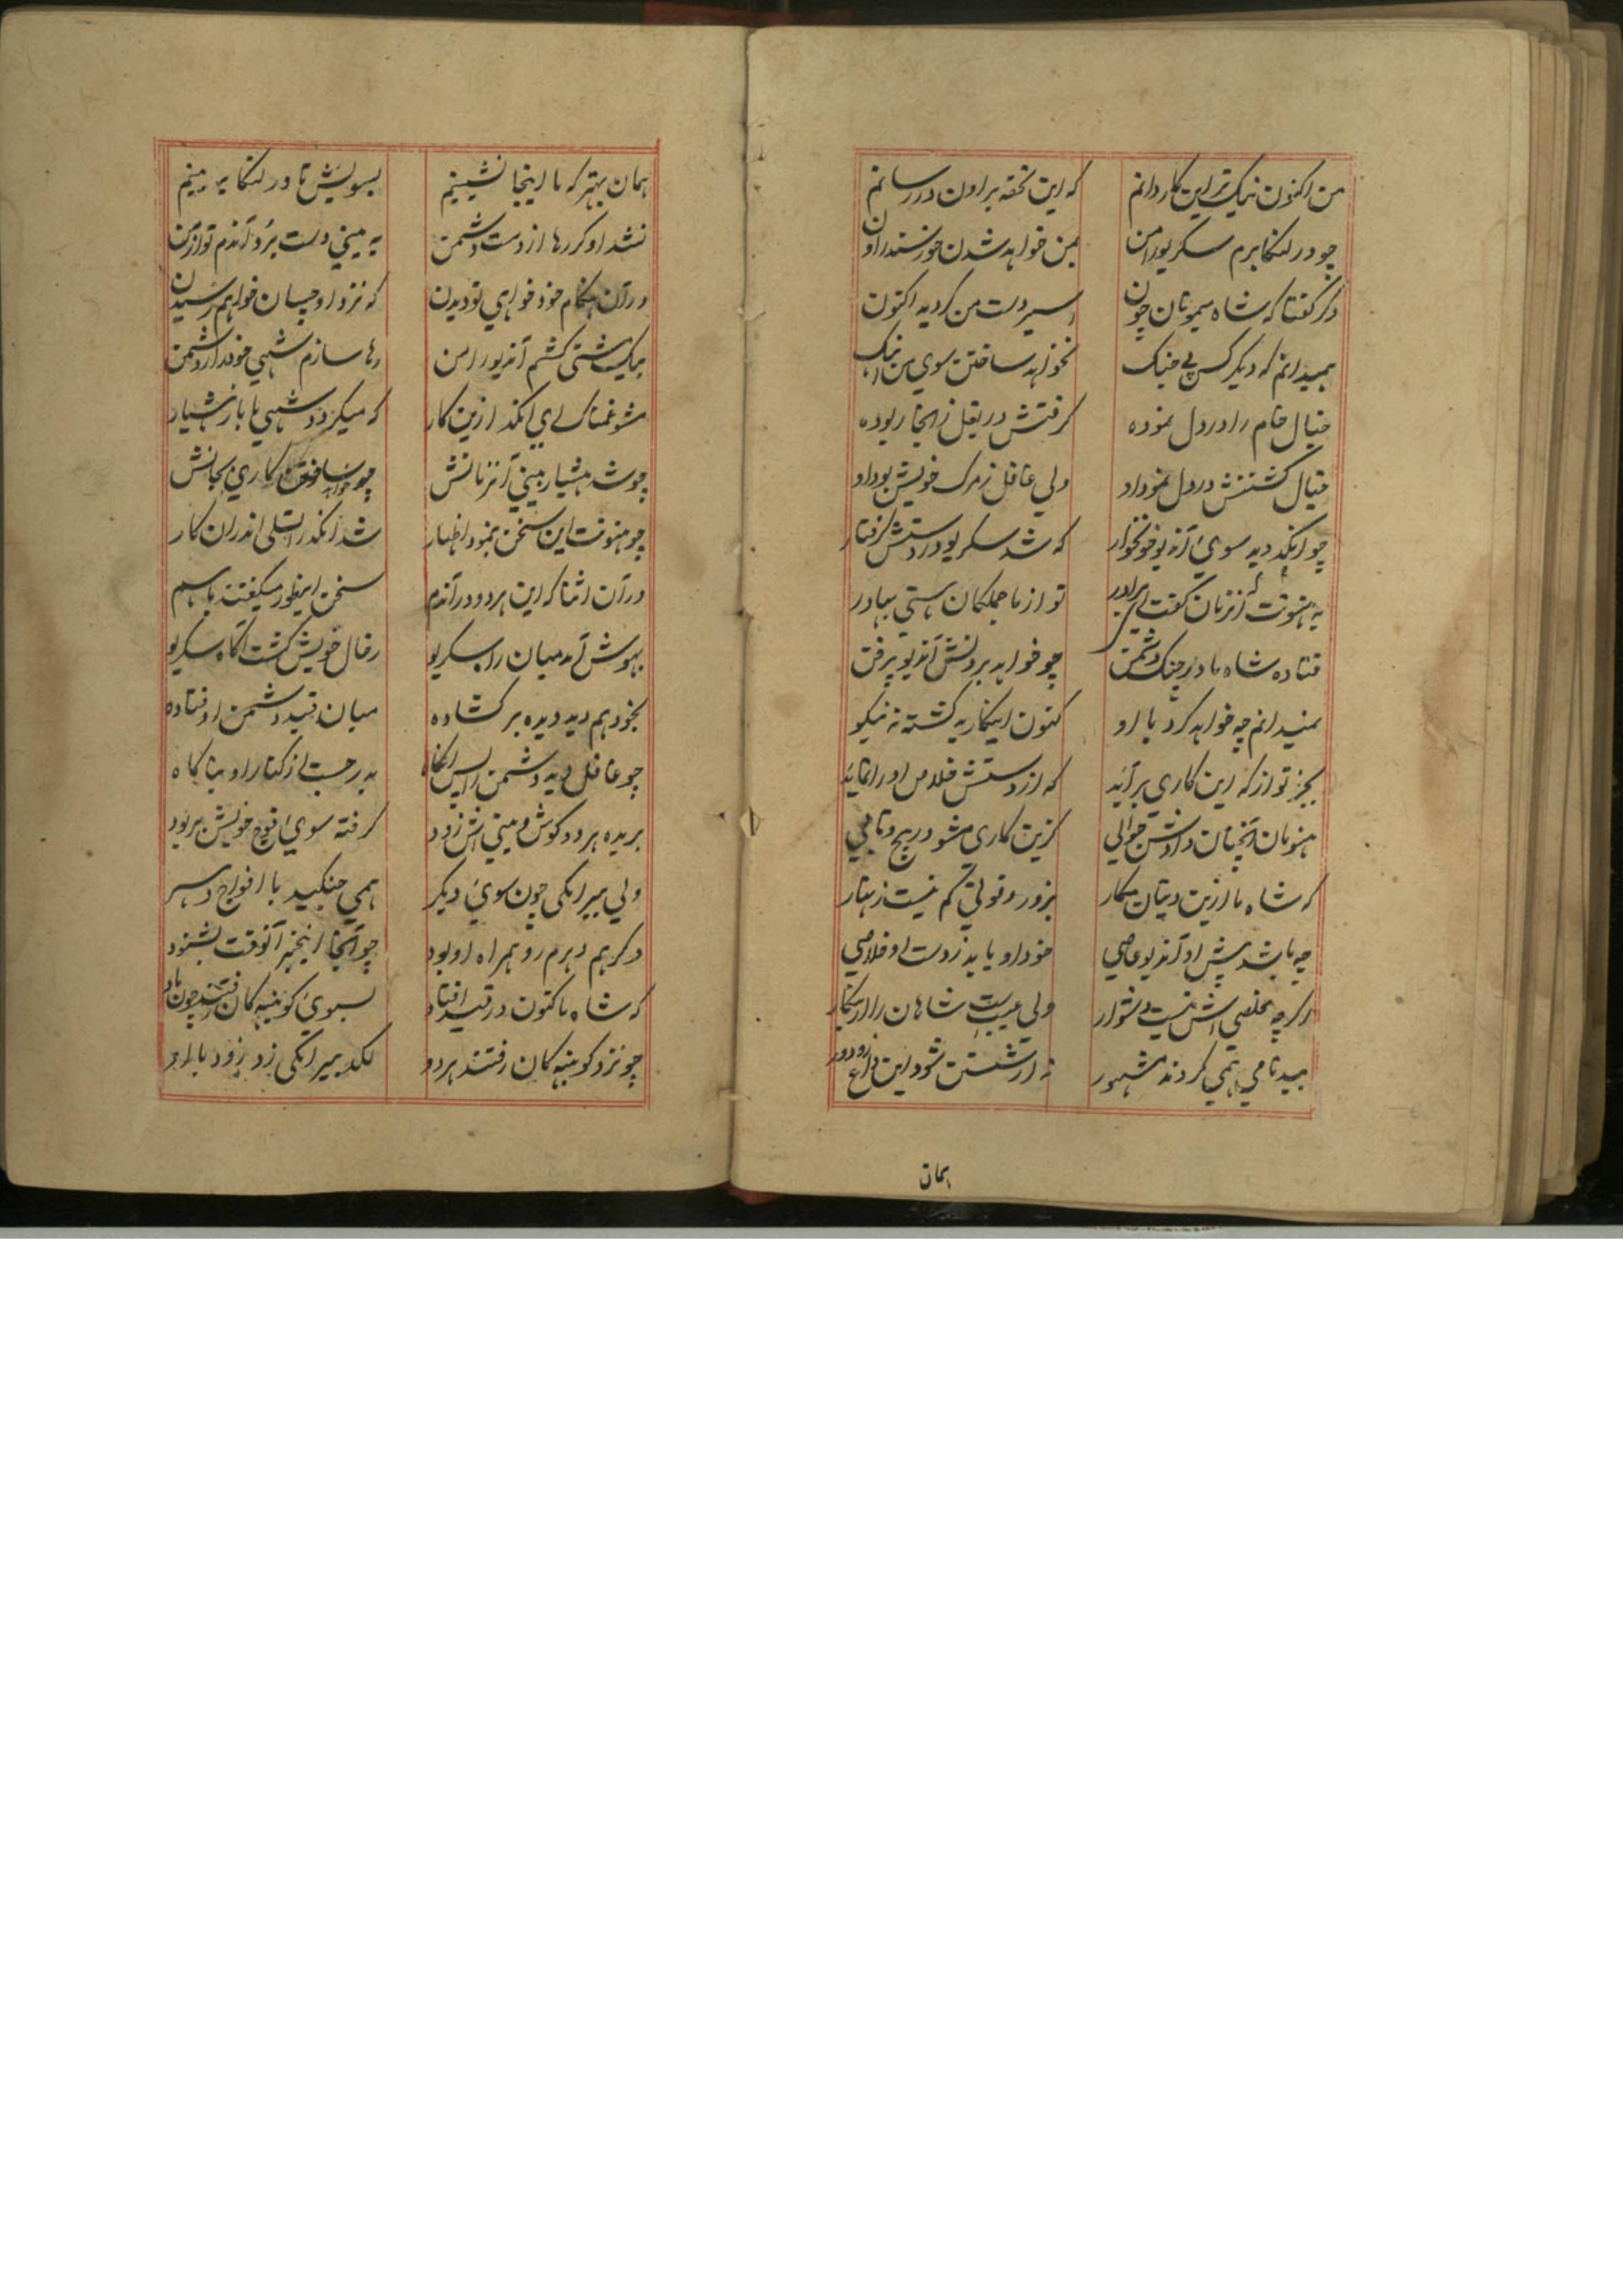 من اکنون نیک تر این کار دانم که این تحفه براون در رسانم
چو در لنکا برم سکریو را من بمن خواهد شدن خورسند راون
دکر کفتا که شاه میمونان چون اسیر دست من کردیه اکنون
همیدانم که دیکر کس پی جنک نخواهد ساختن سوی من آهنک
خیال خام را در دل نموده کرفتش در بغل زانجا ربوده
خیال کشتنش در دل نمود او ولی غافل ز مرک خویش بود او
چو انکد دید سوی آندیو خونخوار که شد سکریو در دستش کرفتار
به هنونت آنزمان کفت ای برادر تو از ما جملکان هستی بهادر
فتاده شاه ما در چنک دشمن چو خواهد بردنش آندیو پرفن
نمیدانم چه خواهد کرد با او کنون اینکار یه کشته نه نیکو
بجز تو از که این کاری برآید که از دستش خلاص او را نماید
هنومان آنچنان دادش جوابی کزین کاری مشو در پیچ و تابی
که شاه ما ازین دیتان مکار بزور و قوتی کم نیست زنهار
چه باشد پیش او آندیو عاصی خود او یابد ز دست او خلاصی
اکرچه مخلصی اش نیست دشوار ولی عیب است شاهان را از اینکار
ببدنامی همی کردند مشهور نه از شستن شود این داغ زو دور
همان
همان بهتر که ما اینجا نشینیم بسویش تا در لنکا به بینیم
نشد او کر رها از دست دشمن به بینی دست برد آندم تو از من
در آن هنکام خود خواهی تو دیدن که نزد او چسان خواهم رسیدن
بیک مشتی کشم آندیو را من رها سازم شهی خود را ز دشمن
مشو غمناک ای انکد ازین کار که میکردد شهی ما باز هشیار
چو شد هشیار بینی آنزمانش چو خواهد ساختن کاری بجانش
چو هنونت این سخن بنمود اظهار شد انکد را تسلی اندران کار
در آن اثنا که این هر دو در آندم سخن اینطور میکفتند باهم
بهوش آمد میان راه سکریو ز حال خویش کشت آکاه سکریو
بخود هم دید دیده بر کشاده میان قید دشمن اوفتاده
چو غافل دید دشمن را پس آنکاه بدر جست از کنار او بناکاه
بریده هر دو کوش و بینی اش زود کرفته سوی افوج خویش بربود
ولی بیرانکی چون سوی دیکر همی جنکید با افواج دهسر
دکر هم دهرم رو همراه او بود چو آنجا اینخبر آنوقت بشنود
که شاه ما کنون در قید افتاد بسوی کونبه کان رفتند چون باد
چو نزد کونبه کان رفتند هر دو لکد بیرانکی زد زود با او